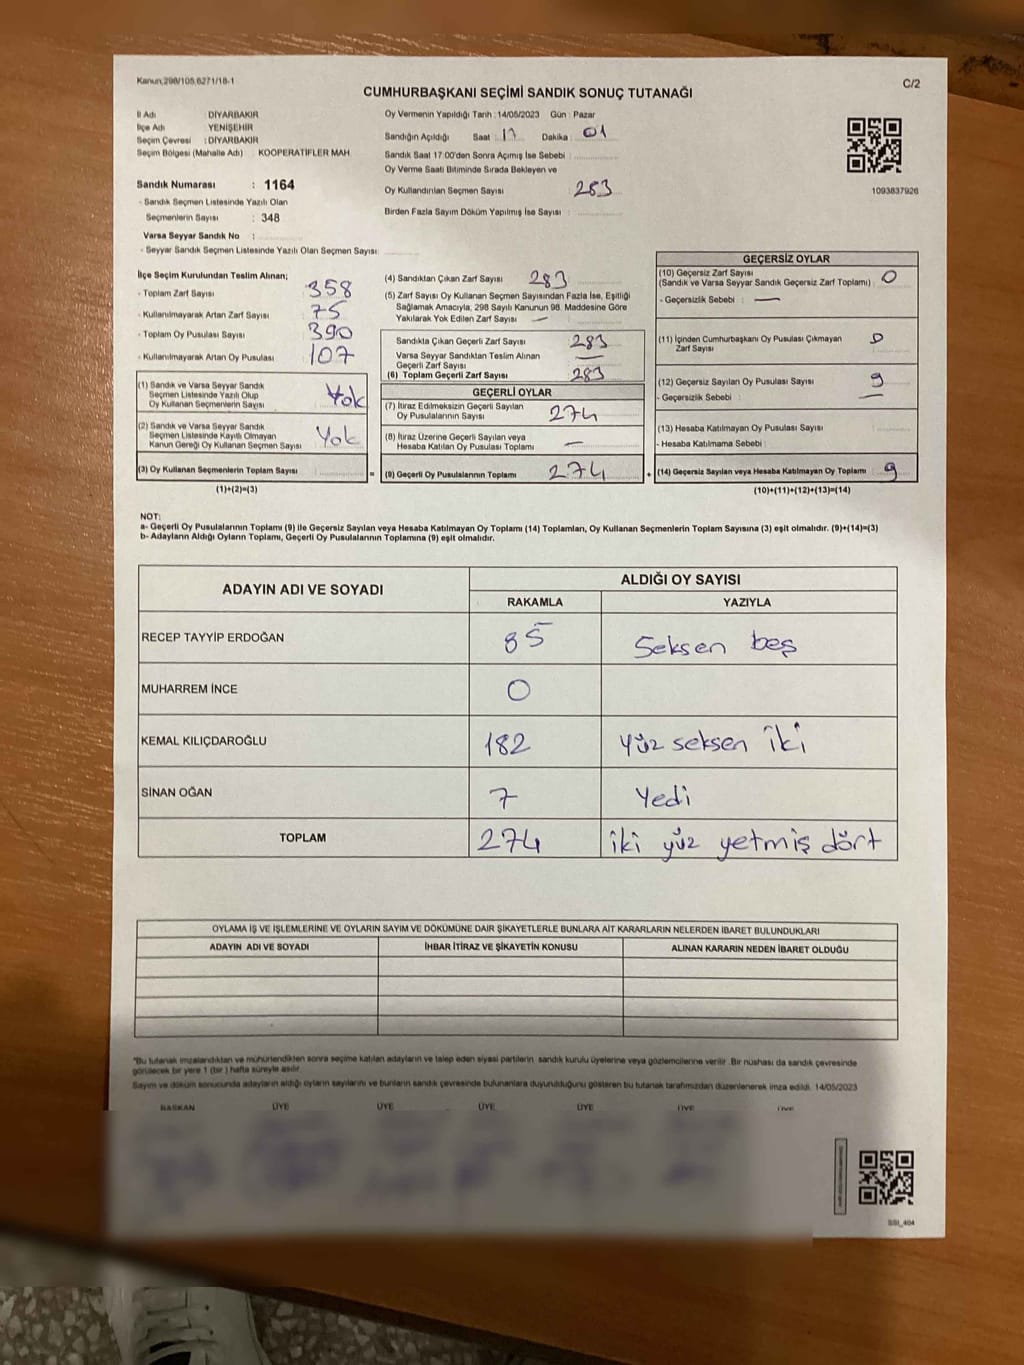 Kanun:298/105,6271/18-1
C/2
CUMHURBAŞKANI SEÇİMİ SANDIK SONUÇ TUTANAĞI
İl Adı : DİYARBAKIR
İlçe Adı : YENİŞEHİR
Seçim Çevresi : DİYARBAKIR
Seçim Bölgesi (Mahalle Adı) : KOOPERATİFLER MAH.
Sandık Numarası : 1164
- Sandık Seçmen Listesinde Yazılı Olan
Seçmenlerin Sayısı : 348
Varsa Seyyar Sandık No :
- Seyyar Sandık Seçmen Listesinde Yazılı Olan Seçmen Sayısı:
Oy Vermenin Yapıldığı Tarih : 14/05/2023 Gün : Pazar
Sandığın Açıldığı Saat : 17 Dakika : 01
Sandık Saat 17:00'den Sonra Açımış İse Sebebi :
Oy Verme Saati Bitiminde Sırada Bekleyen ve
Oy Kullandırılan Seçmen Sayısı : 283
Birden Fazla Sayım Döküm Yapılmış İse Sayısı :
1093837926
İlçe Seçim Kurulundan Teslim Alınan;
- Toplam Zarf Sayısı : 358
- Kullanılmayarak Artan Zarf Sayısı : 75
- Toplam Oy Pusulası Sayısı : 390
- Kullanılmayarak Artan Oy Pusulası : 107
(1) Sandık ve Varsa Seyyar Sandık
Seçmen Listesinde Yazılı Olup
Oy Kullanan Seçmenlerin Sayısı : Yok
(2) Sandık ve Varsa Seyyar Sandık
Seçmen Listesinde Kayıtlı Olmayan
Kanun Gereği Oy Kullanan Seçmen Sayısı : Yok
(3) Oy Kullanan Seçmenlerin Toplam Sayısı :
(1)+(2)=(3)
(4) Sandıktan Çıkan Zarf Sayısı : 283
(5) Zarf Sayısı Oy Kullanan Seçmen Sayısından Fazla İse, Eşitliği
Sağlamak Amacıyla, 298 Sayılı Kanunun 98. Maddesine Göre
Yakılarak Yok Edilen Zarf Sayısı : —
Sandıkta Çıkan Geçerli Zarf Sayısı : 283
Varsa Seyyar Sandıktan Teslim Alınan
Geçerli Zarf Sayısı : —
(6) Toplam Geçerli Zarf Sayısı : 283
GEÇERLİ OYLAR
(7) İtiraz Edilmeksizin Geçerli Sayılan
Oy Pusulalarının Sayısı : 274
(8) İtiraz Üzerine Geçerli Sayılan veya
Hesaba Katılan Oy Pusulası Toplamı : —
= (9) Geçerli Oy Pusulalarının Toplamı : 274 +
GEÇERSİZ OYLAR
(10) Geçersiz Zarf Sayısı
(Sandık ve Varsa Seyyar Sandık Geçersiz Zarf Toplamı) : 0
- Geçersizlik Sebebi : —
(11) İçinden Cumhurbaşkanı Oy Pusulası Çıkmayan
Zarf Sayısı : 0
(12) Geçersiz Sayılan Oy Pusulası Sayısı : 9
- Geçersizlik Sebebi : —
(13) Hesaba Katılmayan Oy Pusulası Sayısı :
- Hesaba Katılmama Sebebi :
(14) Geçersiz Sayılan veya Hesaba Katılmayan Oy Toplamı : 9
(10)+(11)+(12)+(13)=(14)
NOT:
a- Geçerli Oy Pusulalarının Toplamı (9) ile Geçersiz Sayılan veya Hesaba Katılmayan Oy Toplamı (14) Toplamları, Oy Kullanan Seçmenlerin Toplam Sayısına (3) eşit olmalıdır. (9)+(14)=(3)
b- Adayların Aldığı Oyların Toplamı, Geçerli Oy Pusulalarının Toplamına (9) eşit olmalıdır.
ADAYIN ADI VE SOYADI
ALDIĞI OY SAYISI
RAKAMLA YAZIYLA
RECEP TAYYİP ERDOĞAN 85 Seksen beş
MUHARREM İNCE 0
KEMAL KILIÇDAROĞLU 182 Yüz seksen iki
SİNAN OĞAN 7 Yedi
TOPLAM 274 iki yüz yetmiş dört
OYLAMA İŞ VE İŞLEMLERİNE VE OYLARIN SAYIM VE DÖKÜMÜNE DAİR ŞİKAYETLERLE BUNLARA AİT KARARLARIN NELERDEN İBARET BULUNDUKLARI
ADAYIN ADI VE SOYADI İHBAR İTİRAZ VE ŞİKAYETİN KONUSU ALINAN KARARIN NEDEN İBARET OLDUĞU
"Bu tutanak imzalandıktan ve mühürlendikten sonra seçime katılan adayların ve talep eden siyasi partilerin sandık kurulu üyelerine veya gözlemcilerine verilir. Bir nüshası da sandık çevresinde
görülecek bir yere 1 (bir) hafta süreyle asılır.
Sayım ve döküm sonucunda adayların aldığı oyların sayılarını ve bunların sandık çevresinde bulunanlara duyurulduğunu gösteren bu tutanak tarafımızdan düzenlenerek imza edildi. 14/05/2023
BAŞKAN ÜYE ÜYE ÜYE ÜYE ÜYE ÜYE
SSI_404